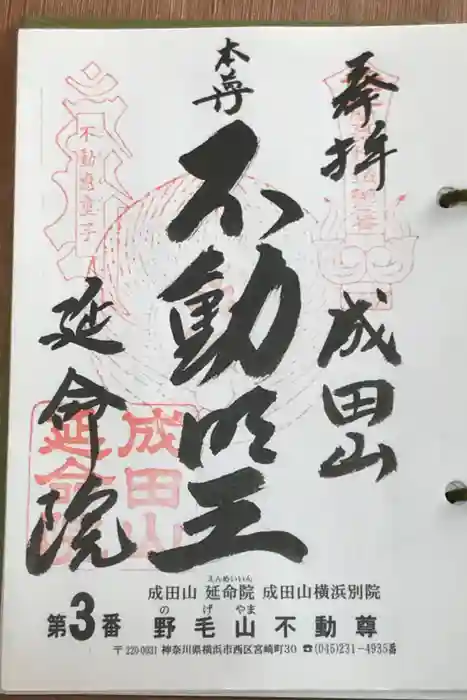 奉拝
成田山
本尊
不動明王
延命院
不動恵童子
成田山
延命院
えんめいいん
成田山 延命院 成田山横浜別院
のげやま
第3番 野毛山不動尊
〒220-0031 神奈川県横浜市西区宮崎町30 ☎(045)231-4935番